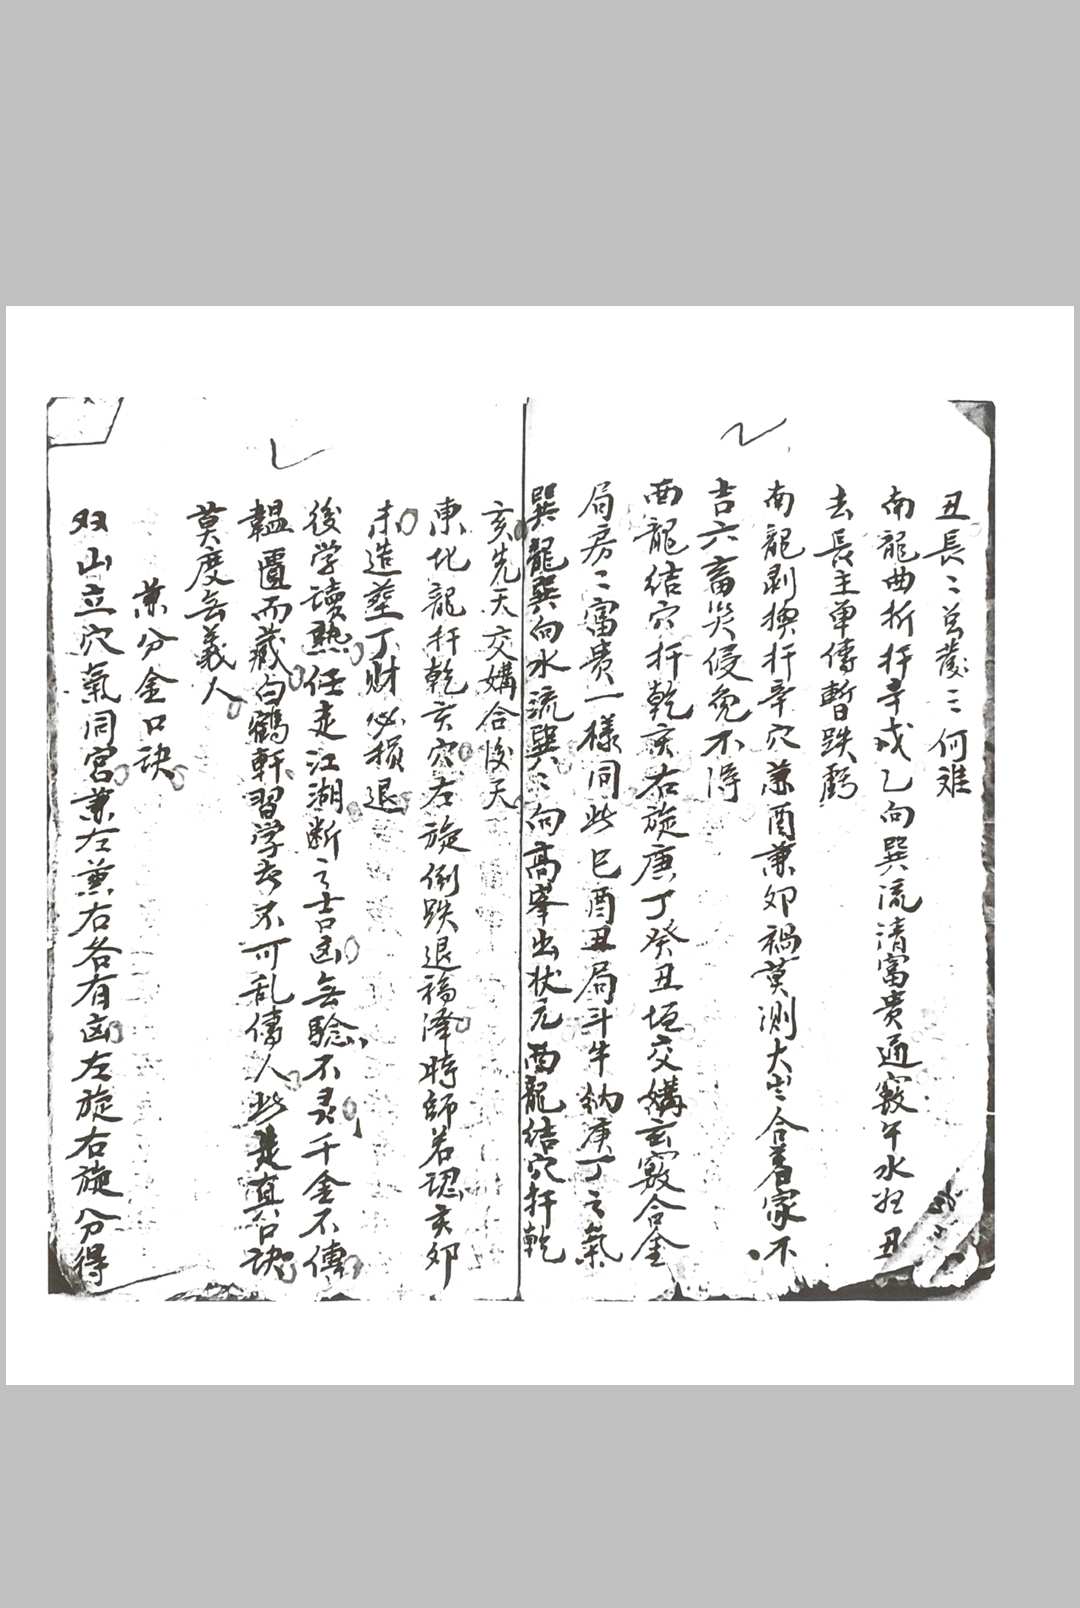 丑長〻总發〻〻何难
南龍曲折扦辛戌乙向巽流清富貴通竅午水狂丑
去長主單傳暫跌虧
南龍剥换扦辛穴兼酉兼卯禍莫测大岁合着家不
吉六畜災侵免不得
西龍结穴扦乾亥右旋庚丁癸丑垣交媾玄竅合金
局房〻富貴一樣同此巳酉丑局斗牛納庚丁之氣
巽龍巽向水流巽〻向高峯出状元酉龍结穴扦乾
亥先天交媾合後天
東北龍扦乾亥穴右旋倒跌退福泽時師若認亥卯
未造塟丁财必損退
後学读熟任走江湖断之吉凶無騐不灵千金不傳
韞匱而藏白鶴軒習学者不可乱傳人此是真口诀
莫度無義人
兼分金口诀
双山立穴氣同宫兼左兼右各有凶左旋右旋分得